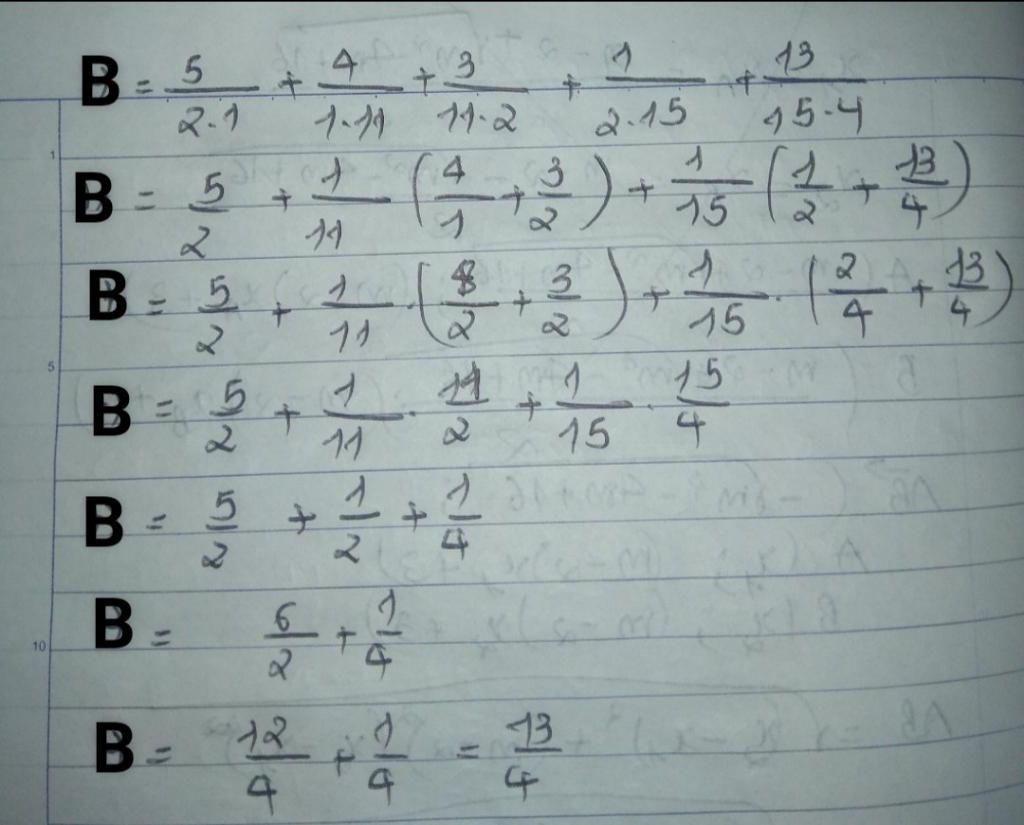 B = 5/2·1 + 4/1·11 + 3/11·2 + 1/2·15 + 13/15·4
B = 5/2 + 1/11 (4/1 + 3/2) + 1/15 (1/2 + 13/4)
B = 5/2 + 1/11 · (8/2 + 3/2) + 1/15 · (2/4 + 13/4)
B = 5/2 + 1/11 · 11/2 + 1/15 · 15/4
B = 5/2 + 1/2 + 1/4
B = 6/2 + 1/4
B = 12/4 + 1/4 = 13/4
1
5
10